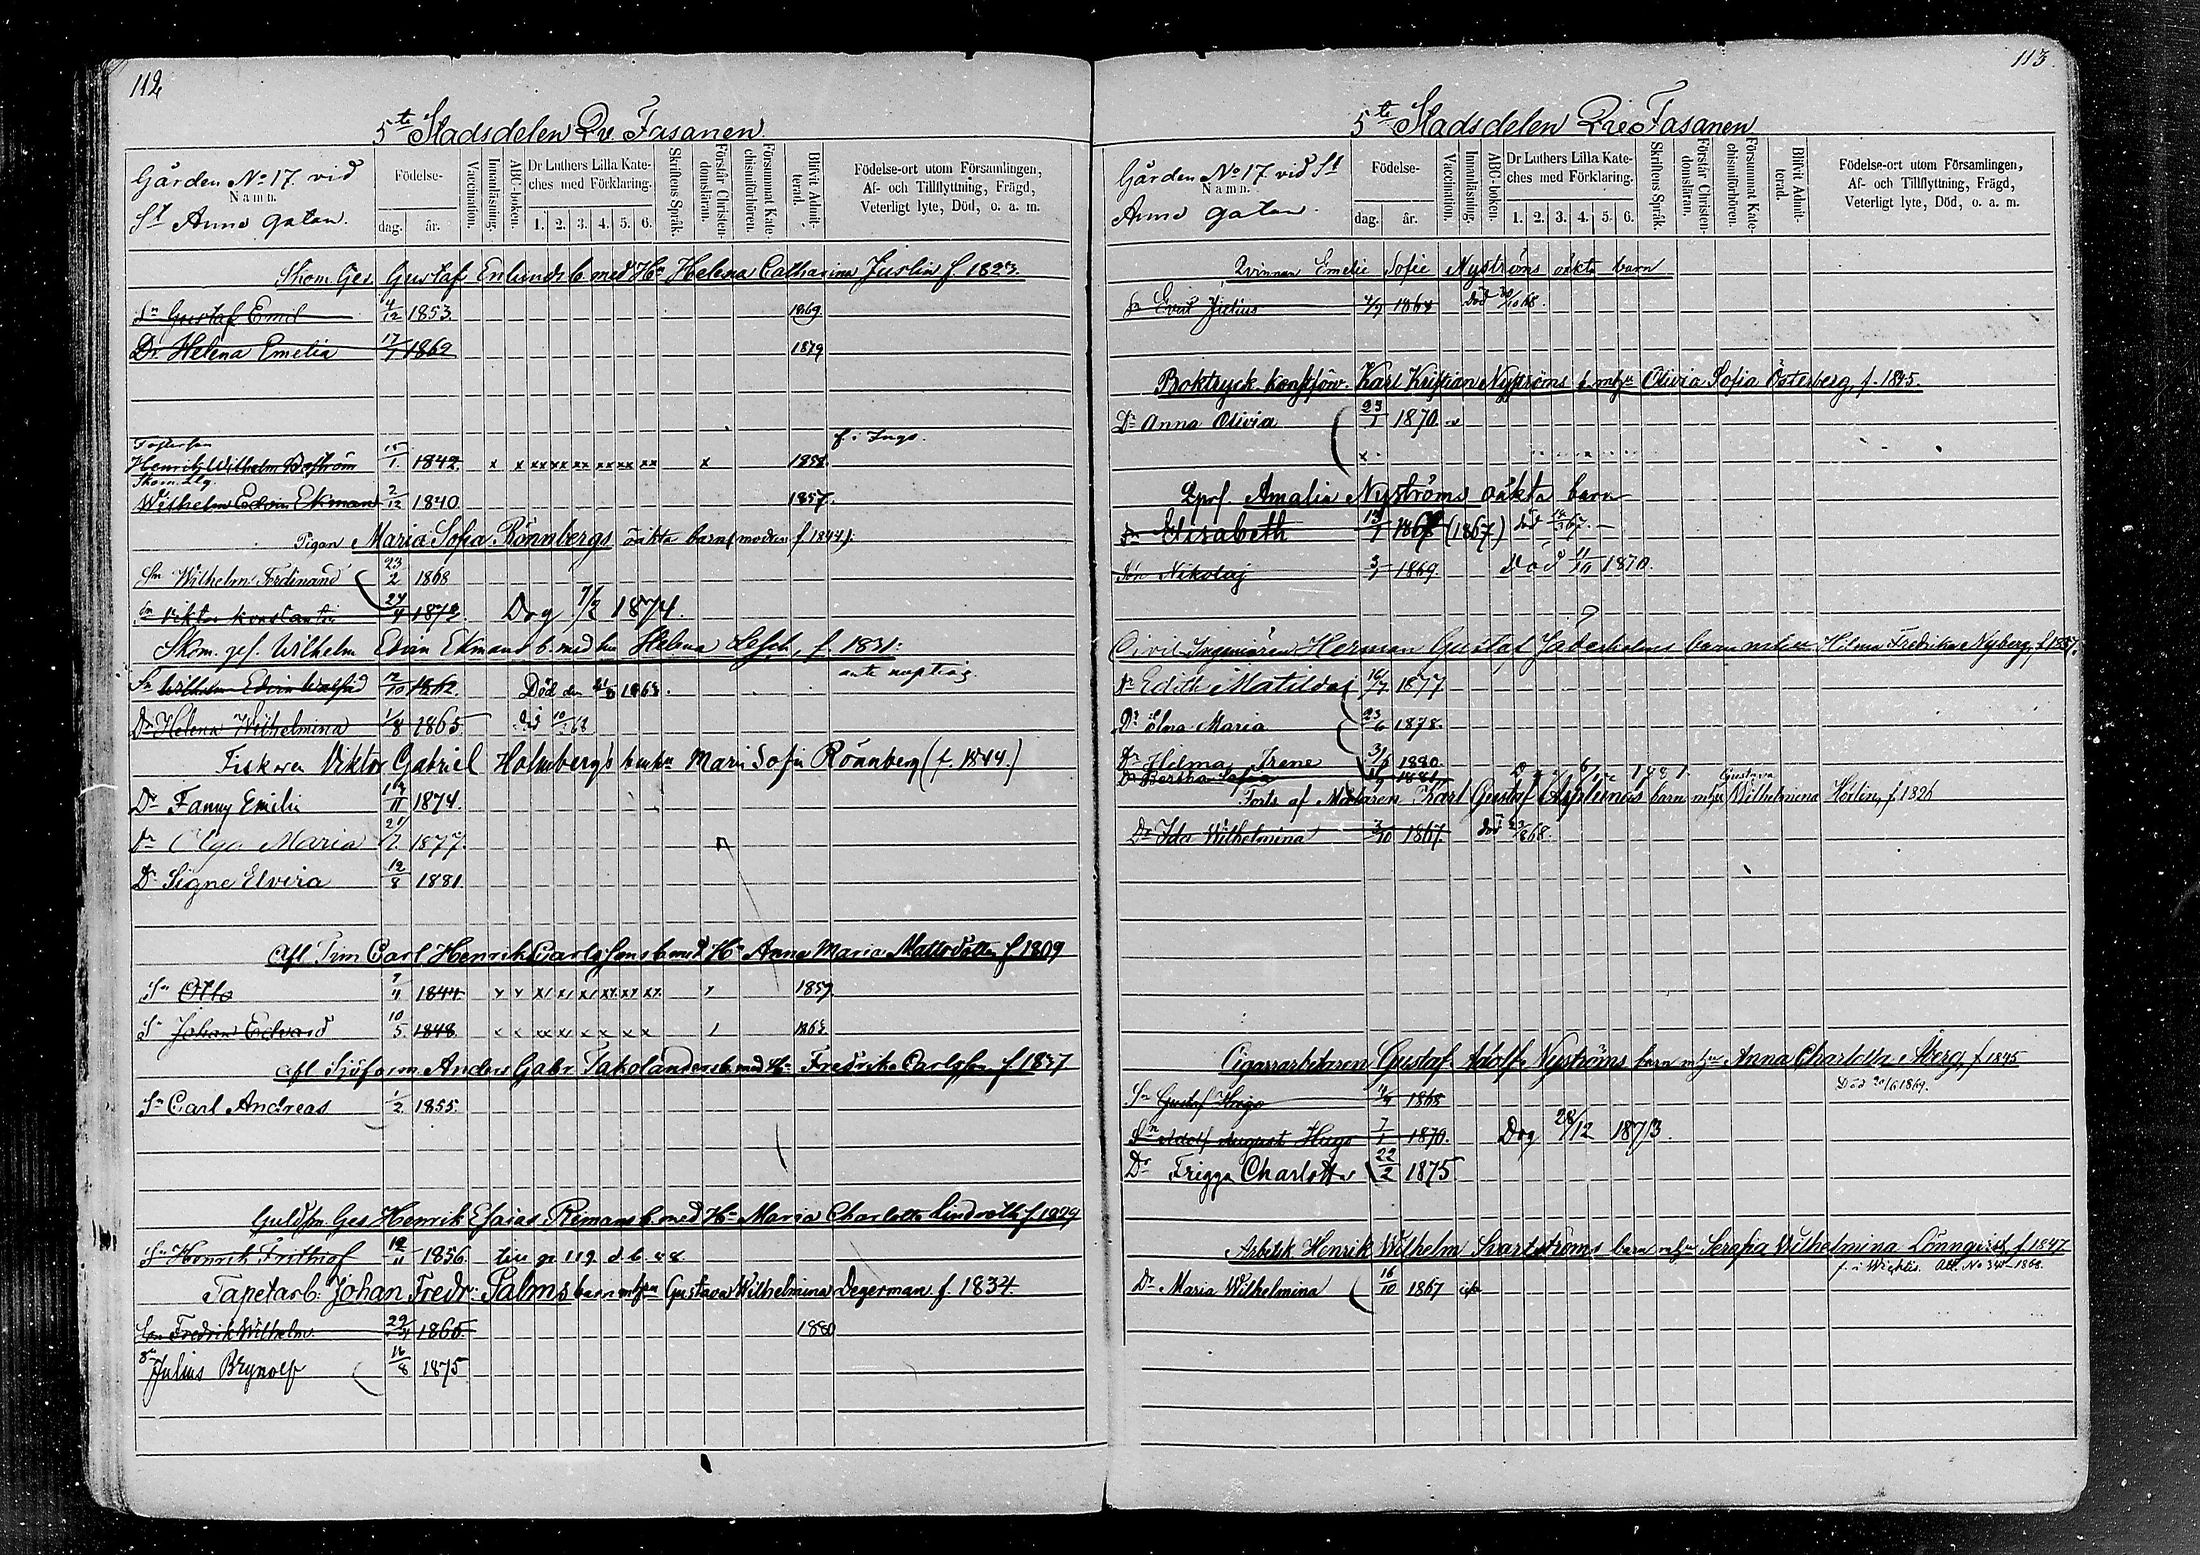 112
5te Stadsdelen Qv. Fasanen
Gården No 17. vid
Namn.
St Anna gatan.
Födelse-
dag. år.
Vaccination.
Innanläsning.
ABC-boken.
Dr Luthers Lilla Kate-
ches med Förklaring.
1. 2. 3. 4. 5. 6.
Skriftens Språk.
Förstår Christen-
domsläran.
Försummat Kate-
chismiförhören.
Blifvit Admit-
terad.
Födelse-ort utom Församlingen,
Af- och Tillflyttning, Frägd,
Veterligt lyte, Död, o. a. m.
Skom. Ges. Gustaf Enlunds b. med Hu Helena Catharina Juslin f. 1823.
Sn Gustaf Emil 4/12 1853. 1869
Dr. Helena Emelia 17/1 1862 1879
Fosterson f. i Ingo.
Henrik Wilhelm Boström 15/1 1842 x x xx xx xx xx xx xx x 1858.
Skom. Llg.
Wilhelm Edvin Ekman 2/12 1840 1857.
Pigan Maria Sofia Rönnbergs oäkta barn (modren f 1844):
Sn Wilhelm Ferdinand 23/2 1868
Sn Viktor Konstantin 24/4 1872 Dog 7/2 1874.
Skom. ges. Wilhelm Edvin Ekmans b. med hu Helena f. 1831:
Sn Wilhelm Edvin Walfrid 12/10 1862 Död den 1863. ante nuptias
Dr Helena Wilhelmina 1/8 1865 död 10/ 68
Fiskaren Viktor Gabriel Holmbergs b m hu Maria Sofia Rönnberg (f. 1844.)
Dr Fanny Emilia /11 1874.
Dr Olga Maria 21/7 1877.
Dr Signe Elvira 12/8 1881.
Afl Tim Carl Henrik Carlssons b med Hu Anna Maria Mattsdotter f 1809
Sn Otto 7/4 1844 1857.
Sn Johan Edvard 10/5 1848 1863
Afl Sjöform Anders Gabr Takolanders b. med Hu Fredrika Carlsson f 1837
Sn Carl Andreas 1/2 1855.
Guldsm Ges Henrik Esaias Rimans b. med Hu Maria Charlotta Lindroth f 1829
Sn Henrik Frithiof 12/11 1856.
Tapetarb: Johan Fredr: Palms barn m hu Gustava Wilhelmina Degerman f. 1834.
Son Fredrik Wilhelm. 29/4 1865 1880
Sn Julius Brynolf 16/8 1875
113.
5te Stadsdelen Qv. Fasanen
Gården No 17 vid St
Namn.
Anna gatan.
Födelse-
dag. år.
Vaccination.
Innanläsning.
ABC-boken.
Dr Luthers Lilla Kate-
ches med Förklaring.
1. 2. 3. 4. 5. 6.
Skriftens Språk.
Förstår Christen-
domsläran.
Försummat Kate-
chismiförhören.
Blifvit Admit-
terad.
Födelse-ort utom Församlingen,
Af- och Tillflyttning, Frägd,
Veterligt lyte, Död, o. a. m.
Qvinnan Emelie Sofie Nyströms oäkta barn
Sn Evert Julius 4/7 1864 död 20/10 68.
Boktryck. konstförv. Karl Kristian Nyströms b. m hu Olivia Sofia Österberg, f. 1845.
Dr Anna Olivia 23/1 1870
Amalia Nyströms oäkta barn
Elisabeth (1867) död 67.
Son Nikolaj 3/1 1869. Död 11/10 1870.
Civil-Ingeniören Herman Gustaf Jäderholms barn m hu Hilma Fredrika Nyberg, f. 1857.
Dr Edith Matilda 16/7 1877
Dr Elna Maria 23/6 1878.
Dr Helma Irene 3/6 1880
Dr Bertha Sofia 1881 1881
Forts af Målaren Karl Gustaf Asplunds barn m hu Gustava Wilhelmina Hörlin, f 1826
Dr Ida Wilhelmina 3/10 1867. död 23/8 68.
Cigarrarbetaren Gustaf Adolf Nyströms barn m hu Anna Charlotta Åberg, f 1845
Död 20/6 1869.
Sn Gustaf Hugo 1868
Sn Adolf August Hugo 7/1 1870. Dog 28/12 1873.
Dr Frigga Charlotta 22/2 1875
Arbetsk Henrik Wilhelm Svartströms barn m hu Serafia Wilhelmina Lönnqvist, f 1847
f. i Wichtis. Att. No 348 1868.
Dr Maria Wilhelmina 16/10 1867